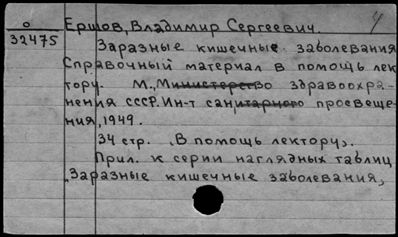 о Ершов, Владимир Сергеевич. 4
32475
Заразные кишечные заболевания
Справочный материал в помощь лек
тору. М., Министерство здравоохра-
нения СССР. Ин-т санитарного просвеще-
ния, 1949.
34 стр. „В помощь лектору„.
Прил. к серии наглядных таблиц
„Заразные кишечные заболевания„